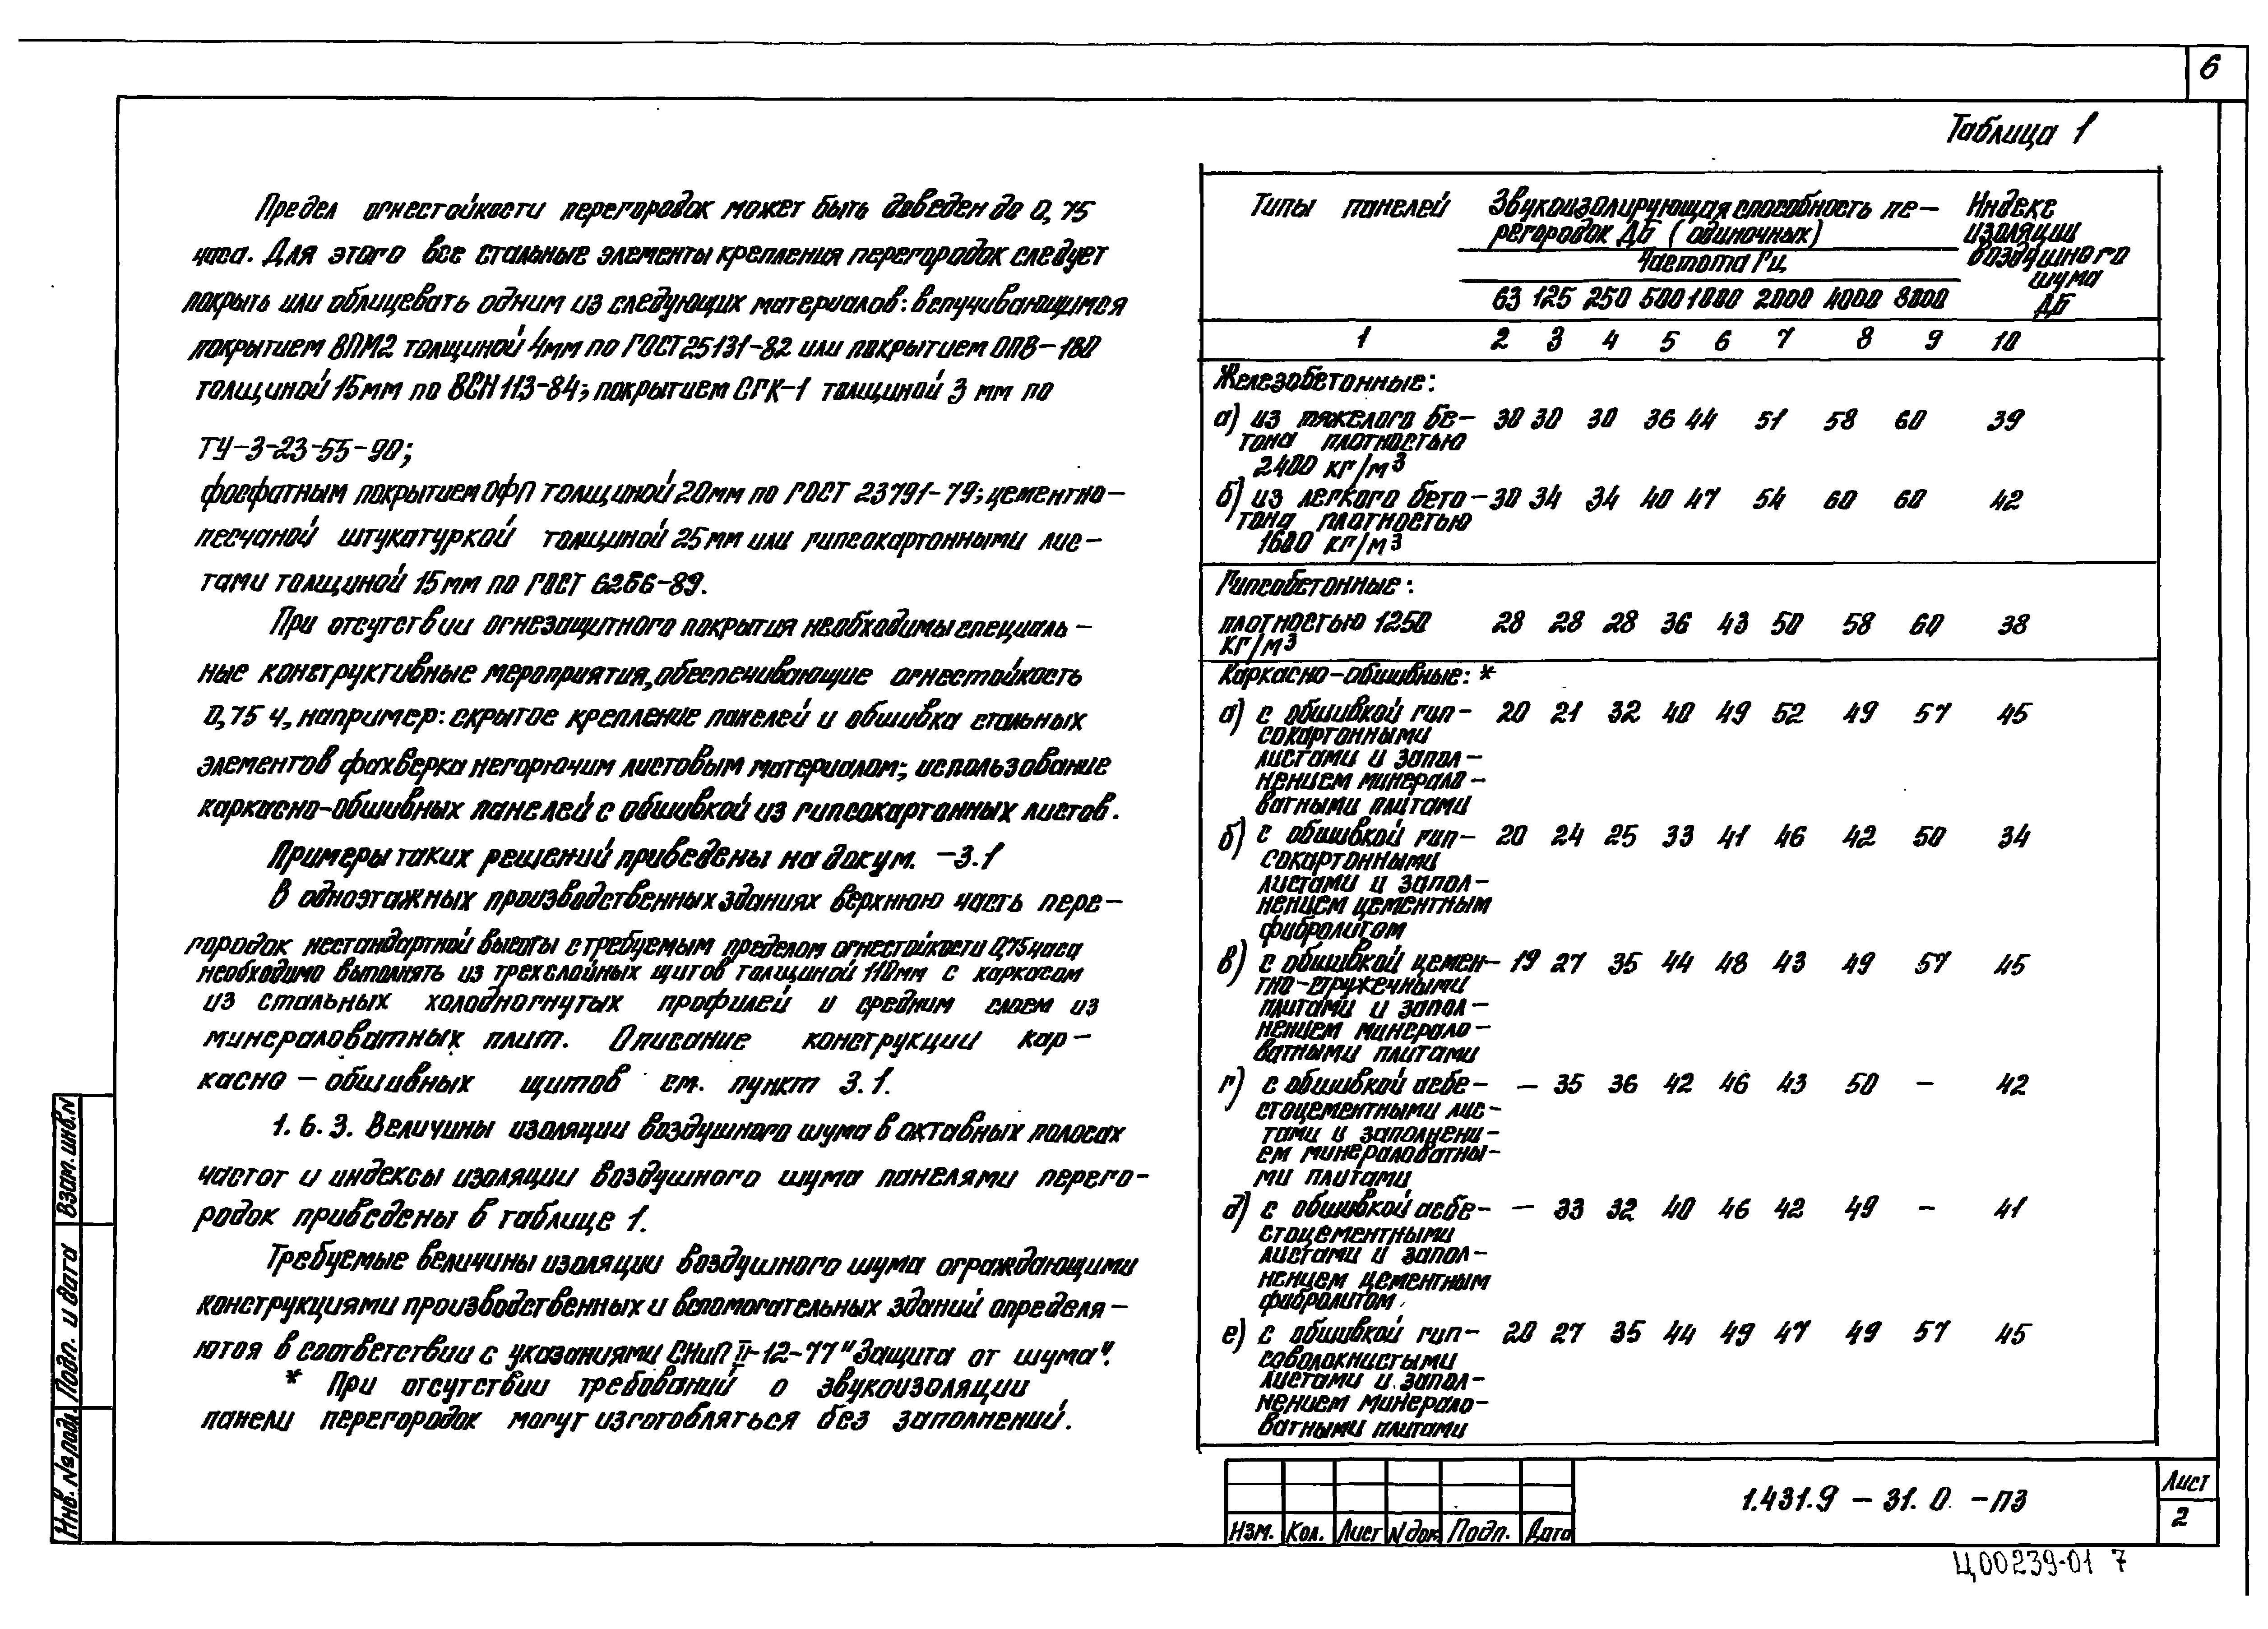 6
Предел огнестойкости перегородок может быть доведен до 0,75
часа. Для этого все стальные элементы крепления перегородок следует
покрыть или облицевать одним из следующих материалов: вспучивающимся
покрытием ВПМ2 толщиной 4мм по ГОСТ 25131-82 или покрытием ОПВ-180
толщиной 15мм по ВСН 113-84; покрытием СГК-1 толщиной 3 мм по
ТУ-3-23-55-90;
фосфатным покрытием ОФП толщиной 20мм по ГОСТ 23791-79; цементно-
песчаной штукатуркой толщиной 25мм или гипсокартонными лис-
тами толщиной 15мм по ГОСТ 6266-89.
При отсутствии огнезащитного покрытия необходимы специаль-
ные конструктивные мероприятия, обеспечивающие огнестойкость
0,75 ч, например: скрытое крепление панелей и обшивка стальных
элементов фахверка негорючим листовым материалом; использование
каркасно-обшивных панелей с обшивкой из гипсокартонных листов.
Примеры таких решений приведены на докум. -3.1
В одноэтажных производственных зданиях верхнюю часть пере-
городок нестандартной высоты с требуемым пределом огнестойкости 0,75часа
необходимо выполнять из трехслойных щитов толщиной 110мм с каркасом
из стальных холодногнутых профилей и средним слоем из
минераловатных плит. Описание конструкции кар-
касно-обшивных щитов см. пункт 3.1.
1.6.3. Величины изоляции воздушного шума в октавных полосах
частот и индексы изоляции воздушного шума панелями перего-
родок приведены в таблице 1.
Требуемые величины изоляции воздушного шума ограждающими
конструкциями производственных и вспомогательных зданий определя-
ются в соответствии с указаниями СНиП II-12-77 "Защита от шума".
* При отсутствии требований о звукоизоляции
панели перегородок могут изготовляться без заполнений.
Таблица 1
Типы панелей Звукоизолирующая способность пе- Индекс
регородок ДБ (одиночных) изоляции
Частота Гц воздушного
шума
63 125 250 500 1000 2000 4000 8000 ДБ
1 2 3 4 5 6 7 8 9 10
Железобетонные:
а) из тяжелого бе- 30 30 30 36 44 51 58 60 39
тона плотностью
2400 кг/м³
б) из легкого бето- 30 34 34 40 47 54 60 60 42
тона плотностью
1600 кг/м³
Гипсобетонные:
плотностью 1250 28 28 28 36 43 50 58 60 38
кг/м³
Каркасно-обшивные: *
а) с обшивкой гип- 20 21 32 40 49 52 49 57 45
сокартонными
листами и запол-
нением минерало-
ватными плитами
б) с обшивкой гип- 20 24 25 33 41 46 42 50 34
сокартонными
листами и запол-
нением цементным
фибролитом
в) с обшивкой цемен- 19 27 35 44 48 43 49 57 45
тно-стружечными
плитами и запол-
нением минерало-
ватными плитами
г) с обшивкой асбе- - 35 36 42 46 43 50 - 42
стоцементными лис-
тами и заполнени-
ем минераловатны-
ми плитами
д) с обшивкой асбе- - 33 32 40 46 42 49 - 41
стоцементными
листами и запол-
нением цементным
фибролитом
е) с обшивкой гип- 20 27 35 44 49 47 49 57 45
соволокнистыми
листами и запол-
нением минерало-
ватными плитами
Взам. инв.N
Подп. и дата
Инв. № подл.
Изм. Кол. Лист N док Подп. Дата
1.431.9 - 31.0 -ПЗ
Лист
2
Ц00239-01 7